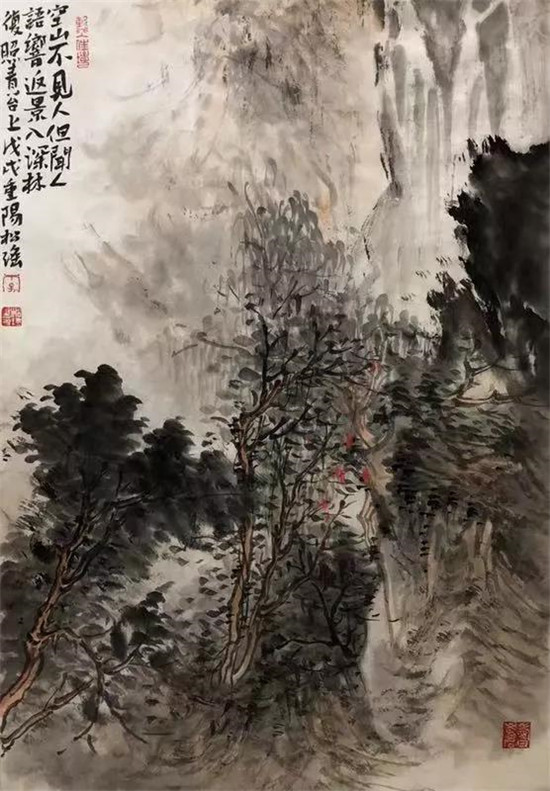 空山不見人但聞人
語響返景入深林
復照青苔上戊戌重陽松瑤